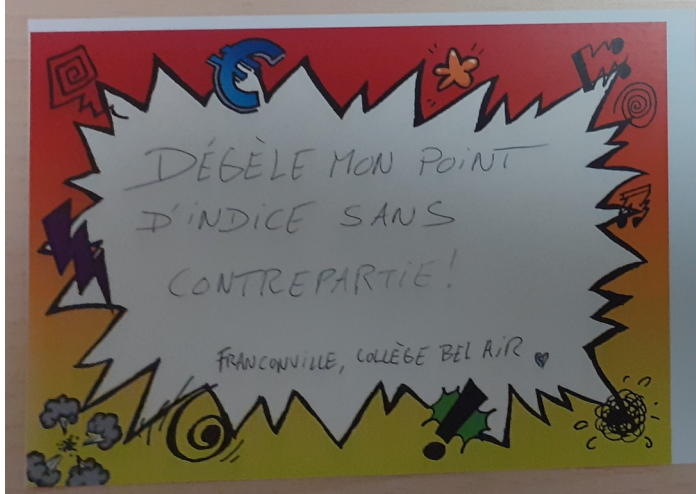 DÉGÈLE MON POINT
D'INDICE SANS
CONTREPARTIE !
FRANCONVILLE, COLLÈGE BEL AIR